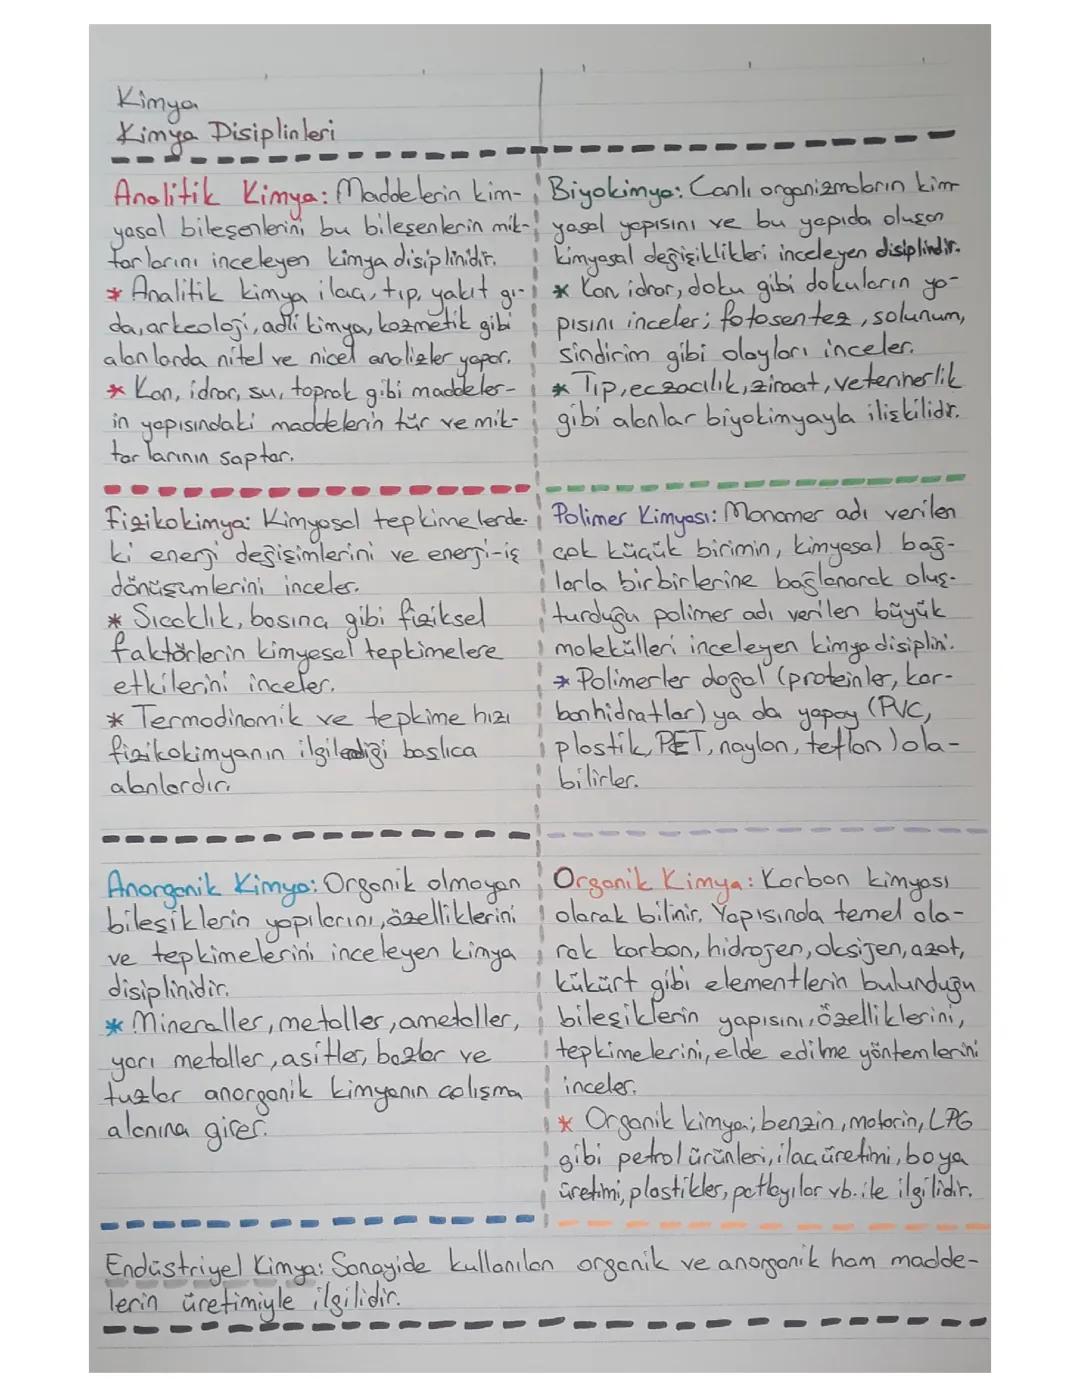 Kimya
Kimya Disiplinleri
Analitik Kimya: Maddelerin kim-
yasal bileşenlerini, bu bileşenlerin mik-
tarlarını inceleyen kimya disiplinidir.
* Analitik kimya ilaç, tıp, yakıt gı-
da, arkeoloji, adli kimya, kozmetik gibi
alanlarda nitel ve nicel analizler yapar.
* Kan, idrar, su, toprak gibi maddeler-
in yapısındaki maddelerin tür ve mik-
tarlarının saptar.
Biyokimya: Canlı organizmaların kim-
yasal yapısını ve bu yapıda oluşan
kimyasal değişiklikleri inceleyen disiplindir.
* Kan, idrar, doku gibi dokuların ya-
pısını inceler; fotosentez, solunum,
sindirim gibi olayları inceler.
* Tıp, eczacılık, ziraat, veterinerlik
gibi alanlar biyokimyayla ilişkilidir.
Fizikokimya: Kimyasal tepkimelerde-
ki enerji değişimlerini ve enerji-iş
dönüşümlerini inceler.
* Sıcaklık, basınç gibi fiziksel
faktörlerin kimyasal tepkimelere
etkilerini inceler.
* Termodinamik ve tepkime hızı
fizikokimyanın ilgilendiği başlıca
alanlardır.
Polimer Kimyası: Monomer adı verilen
çok küçük birimin, kimyasal bağ-
larla birbirlerine bağlanarak oluş-
turduğu polimer adı verilen büyük
molekülleri inceleyen kimya disiplini.
* Polimerler doğal (proteinler, kar-
bonhidratlar) ya da yapay (PVC,
plastik, PET, naylon, teflon) ola-
bilirler.
Anorganik Kimya: Organik olmayan
bileşiklerin yapılarını, özelliklerini
ve tepkimelerini inceleyen kimya
disiplinidir.
* Mineraller, metaller, ametaller,
yarı metaller, asitler, bazlar ve
tuzlar anorganik kimyanın çalışma
alanına girer.
Organik Kimya: Karbon kimyası
olarak bilinir. Yapısında temel ola-
rak karbon, hidrojen, oksijen, azot,
kükürt gibi elementlerin bulunduğu
bileşiklerin yapısını, özelliklerini,
tepkimelerini, elde edilme yöntemlerini
inceler.
* Organik kimya; benzin, motorin, LPG
gibi petrol ürünleri, ilaç üretimi, boya
üretimi, plastikler, patlayıcılar vb. ile ilgilidir.
Endüstriyel Kimya: Sanayide kullanılan organik ve anorganik ham madde-
lerin üretimiyle ilgilidir.